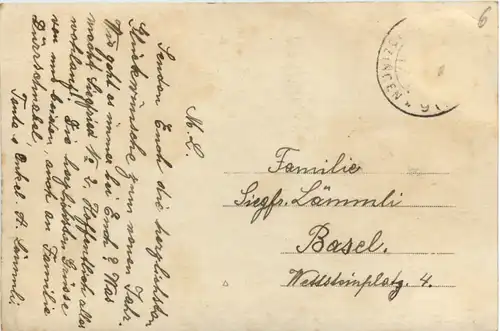 M. L.
Senden Euch die herzlichsten
Glückwünsche zum neuen Jahr.
Wie geht es immer bei Euch? Was
macht Siegfried No 2. Hoffentlich alles
wohlauf! Die herzlichsten Grüsse
von uns beiden, auch an Familie
Dürrschnabel,
Tante & Onkel A. Lämmli.
Familie
Siegfr. Lämmli
Basel.
Wettsteinplatz. 4.
6